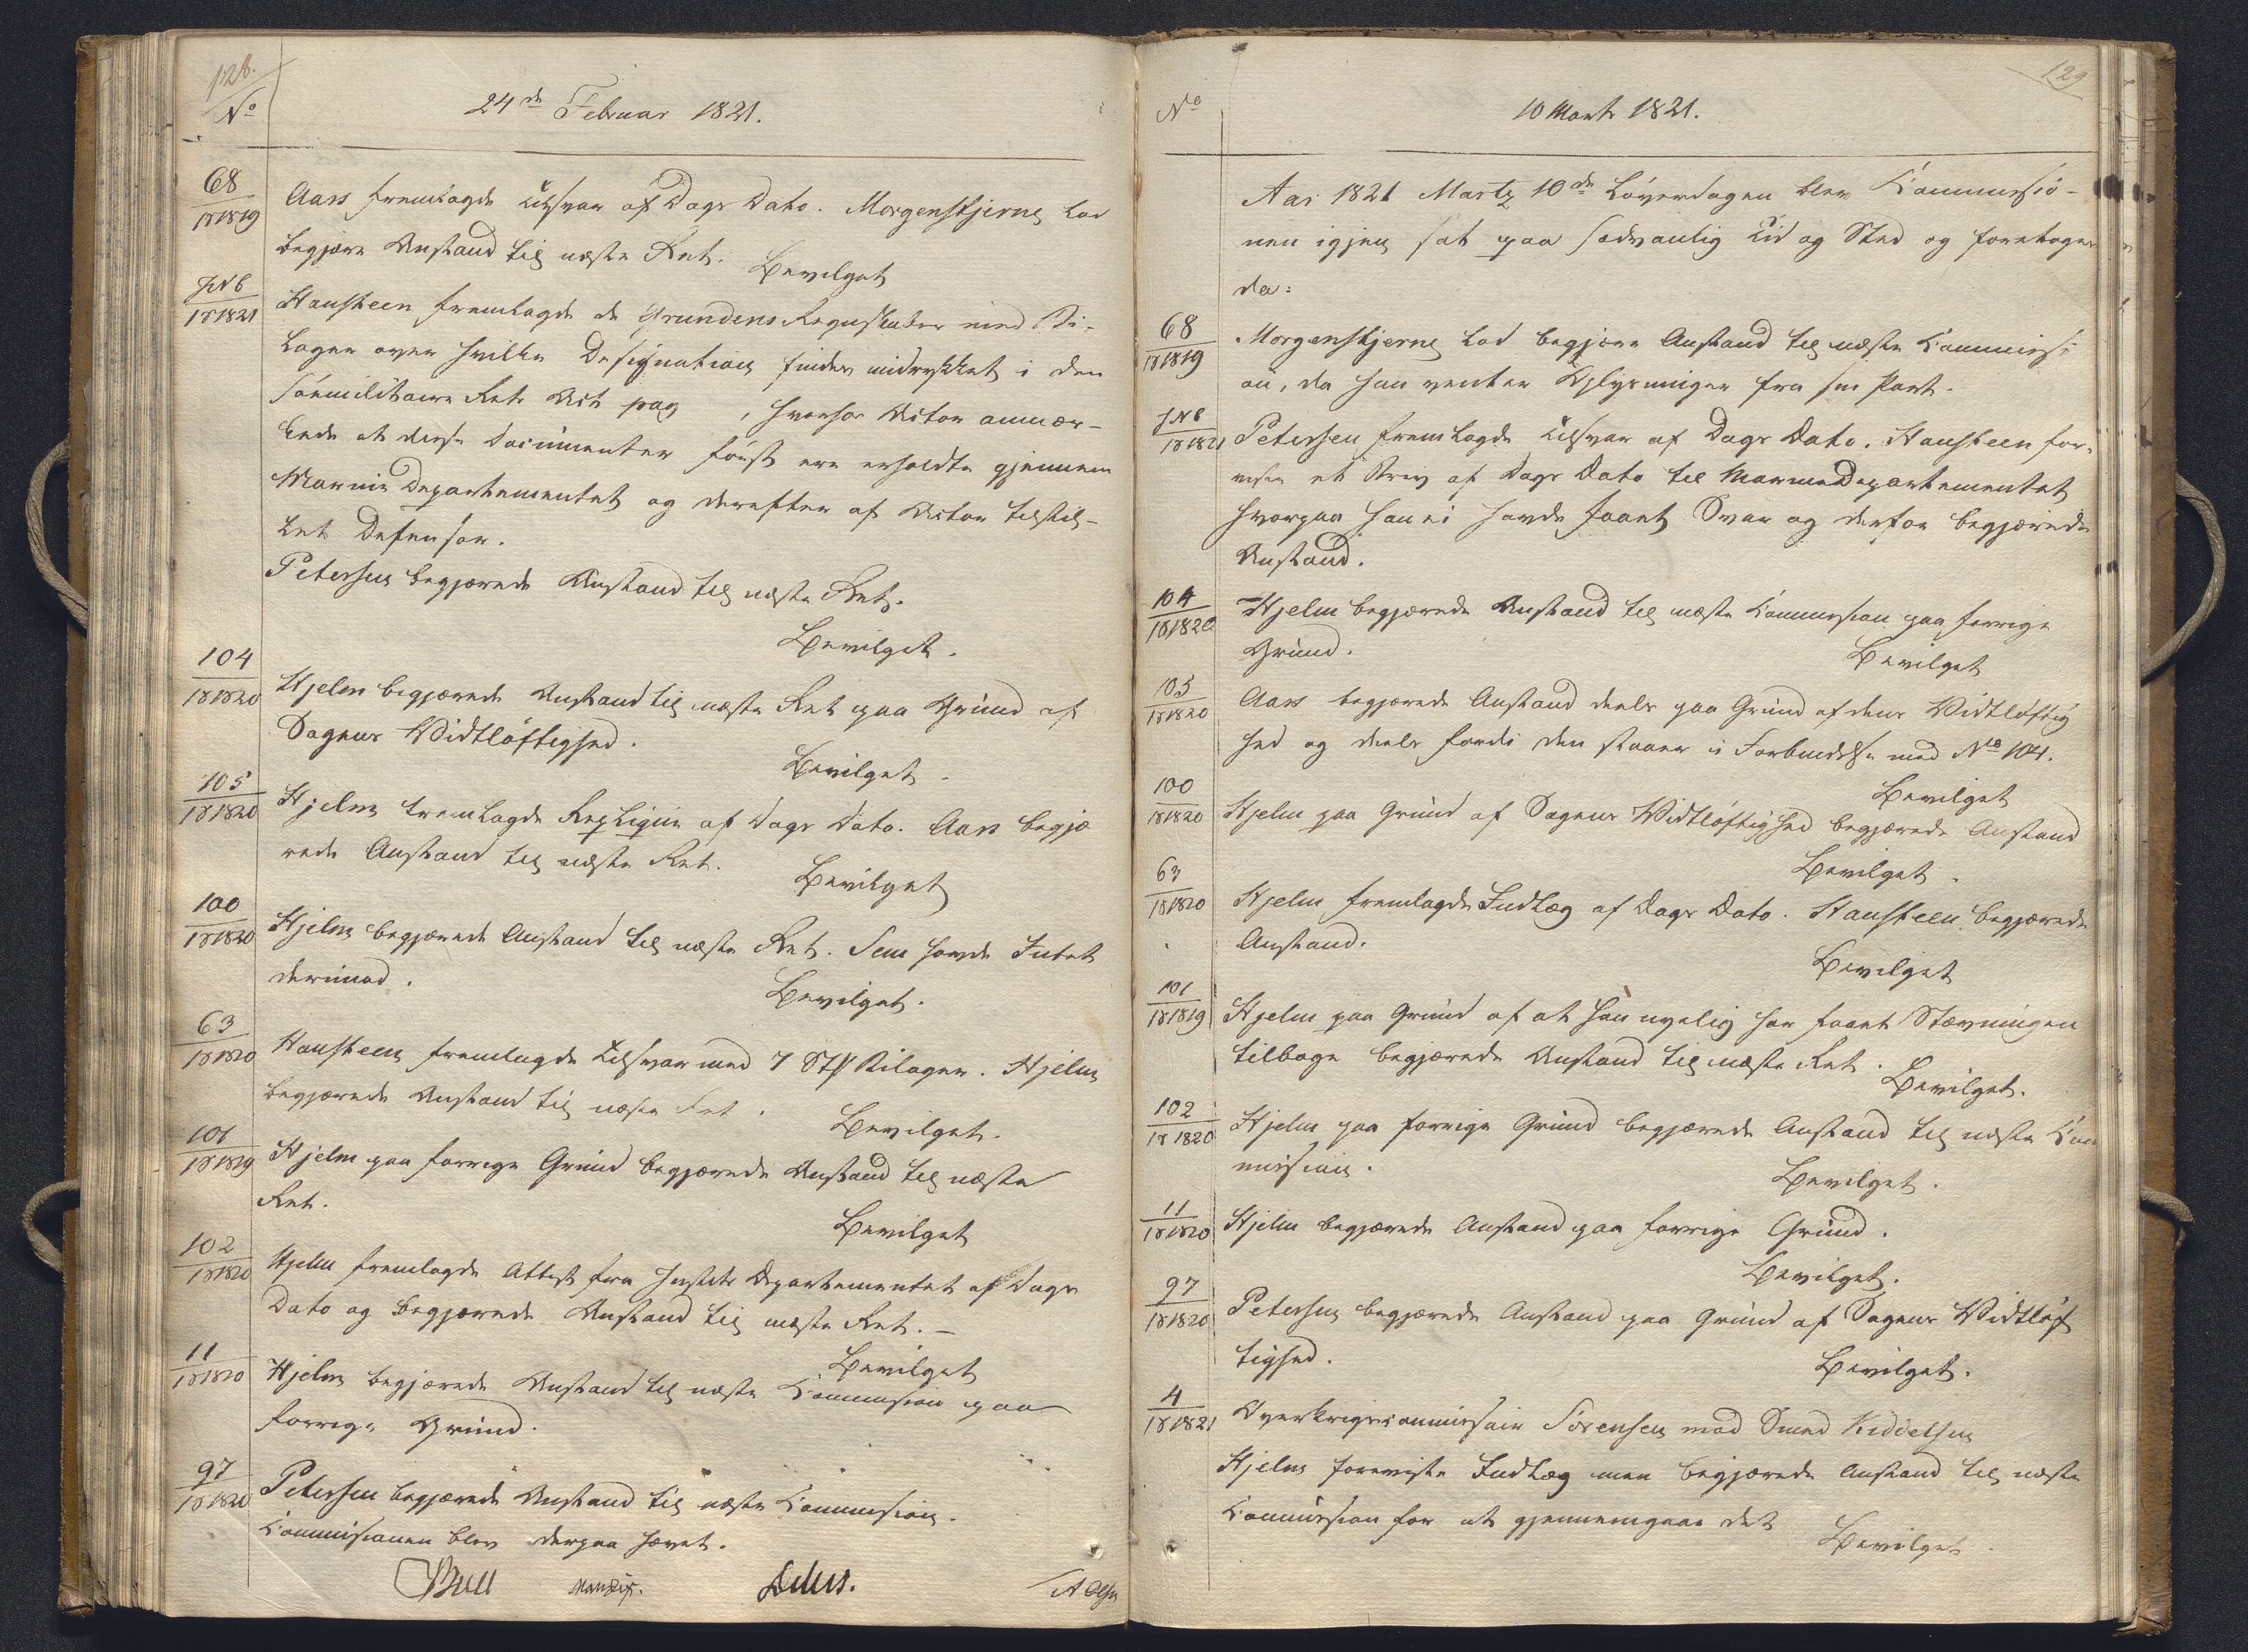 128.
No
24de Februar 1821.
68
1r1819
Aars fremlagde Tilsvar af Dags Dato. Morgenstjerne lod
begjære Anstand til næste Ret.
Bevilget
JN 6
1r1821
Hansteen fremlagde de Grundens Regnskaber med Bi-
lager over hvilke Designation findes indrykket i den
Sömilitaire Rets Act pag , hvorhos Actor anmær-
kede at disse Documenter först ere erholdte gjennem
Marine Departementet og derefter af Actor tilstil-
let Defensor.
Petersen begjærede Anstand til næste Ret.
Bevilget.
104
1r1820
Hjelm begjærede Anstand til næste Ret paa Grund af
Sagens Vidtlöftighed.
Bevilget.
105
1r1820
Hjelm fremlagde Repliqvie af Dags Dato. Aars begjæ
rede Anstand til næste Ret.
Bevilget
100
1r1820
Hjelm begjærede Anstand til næste Ret. Sem havde Intet
derimod.
Bevilget.
63
1r1820
Hansteen fremlagde Tilsvar med 7 Stk Bilager. Hjelm
begjærede Anstand til næste Ret.
Bevilget.
101
1r1819
Hjelm paa forrige Grund begjærede Anstand til næste
Ret.
Bevilget
102
1r1820
Hjelm fremlagde Attest fra Justits Departementet af Dags
Dato og begjærede Anstand til næste Ret. –
Bevilget
11
1r1820
Hjelm begjærede Anstand til næste Commission paa
forrige Grund.
97
1r1820
Petersen begjærede Anstand til næste Commission.
Commissionen blev derpaa hævet.
Bull
129
No
10 Marts 1821.
Aar 1821 Marts 10de Löverdagen blev Commissio-
nen igjen sat paa sædvanlig Tid og Sted og foretoges
da:
68
1r1819
Morgenstjerne lod begjære Anstand til næste Commissi
on, da han venter Oplysninger fra sin Part.
JN 6
1r1821
Petersen fremlagde Tilsvar af Dags Dato. Hansteen for-
viste et Brev af Dags Dato til Marinedepartementet
hvorpaa han ei havde faaet Svar og derfor begjærede
Anstand.
104
1r1820
Hjelm begjærede Anstand til næste Commission paa forrige
Grund.
Bevilget
105
1r1820
Aars begjærede Anstand deels paa Grund af dens Vidtlöftig
hed og deels fordi den staaer i Forbindelse med No 104.
Bevilget
100
1r1820
Hjelm paa Grund af Sagens Vidtlöftighed begjærede Anstand
Bevilget.
63
1r1820
Hjelm fremlagde Indlæg af Dags Dato. Hansteen begjærede
Anstand.
Bevilget
101
1r1819
Hjelm paa Grund af at han nyelig har faaet Stævningen
tilbage begjærede Anstand til næste Ret.
Bevilget.
102
1r1820
Hjelm paa forrige Grund begjærede Anstand til næste Com
mission.
Bevilget.
11
1r1820
Hjelm begjærede Anstand paa forrige Grund.
Bevilget.
97
1r1820
Petersen begjærede Anstand paa Grund af Sagens Vidtlöf
tighed.
Bevilget.
4
1r1821
Overkrigscommissair Sörensen mod Svend Kiddelsen
Hjelm foreviste Indlæg men begjærede Anstand til næste
Commission for at gjennemgaae det
Bevilget